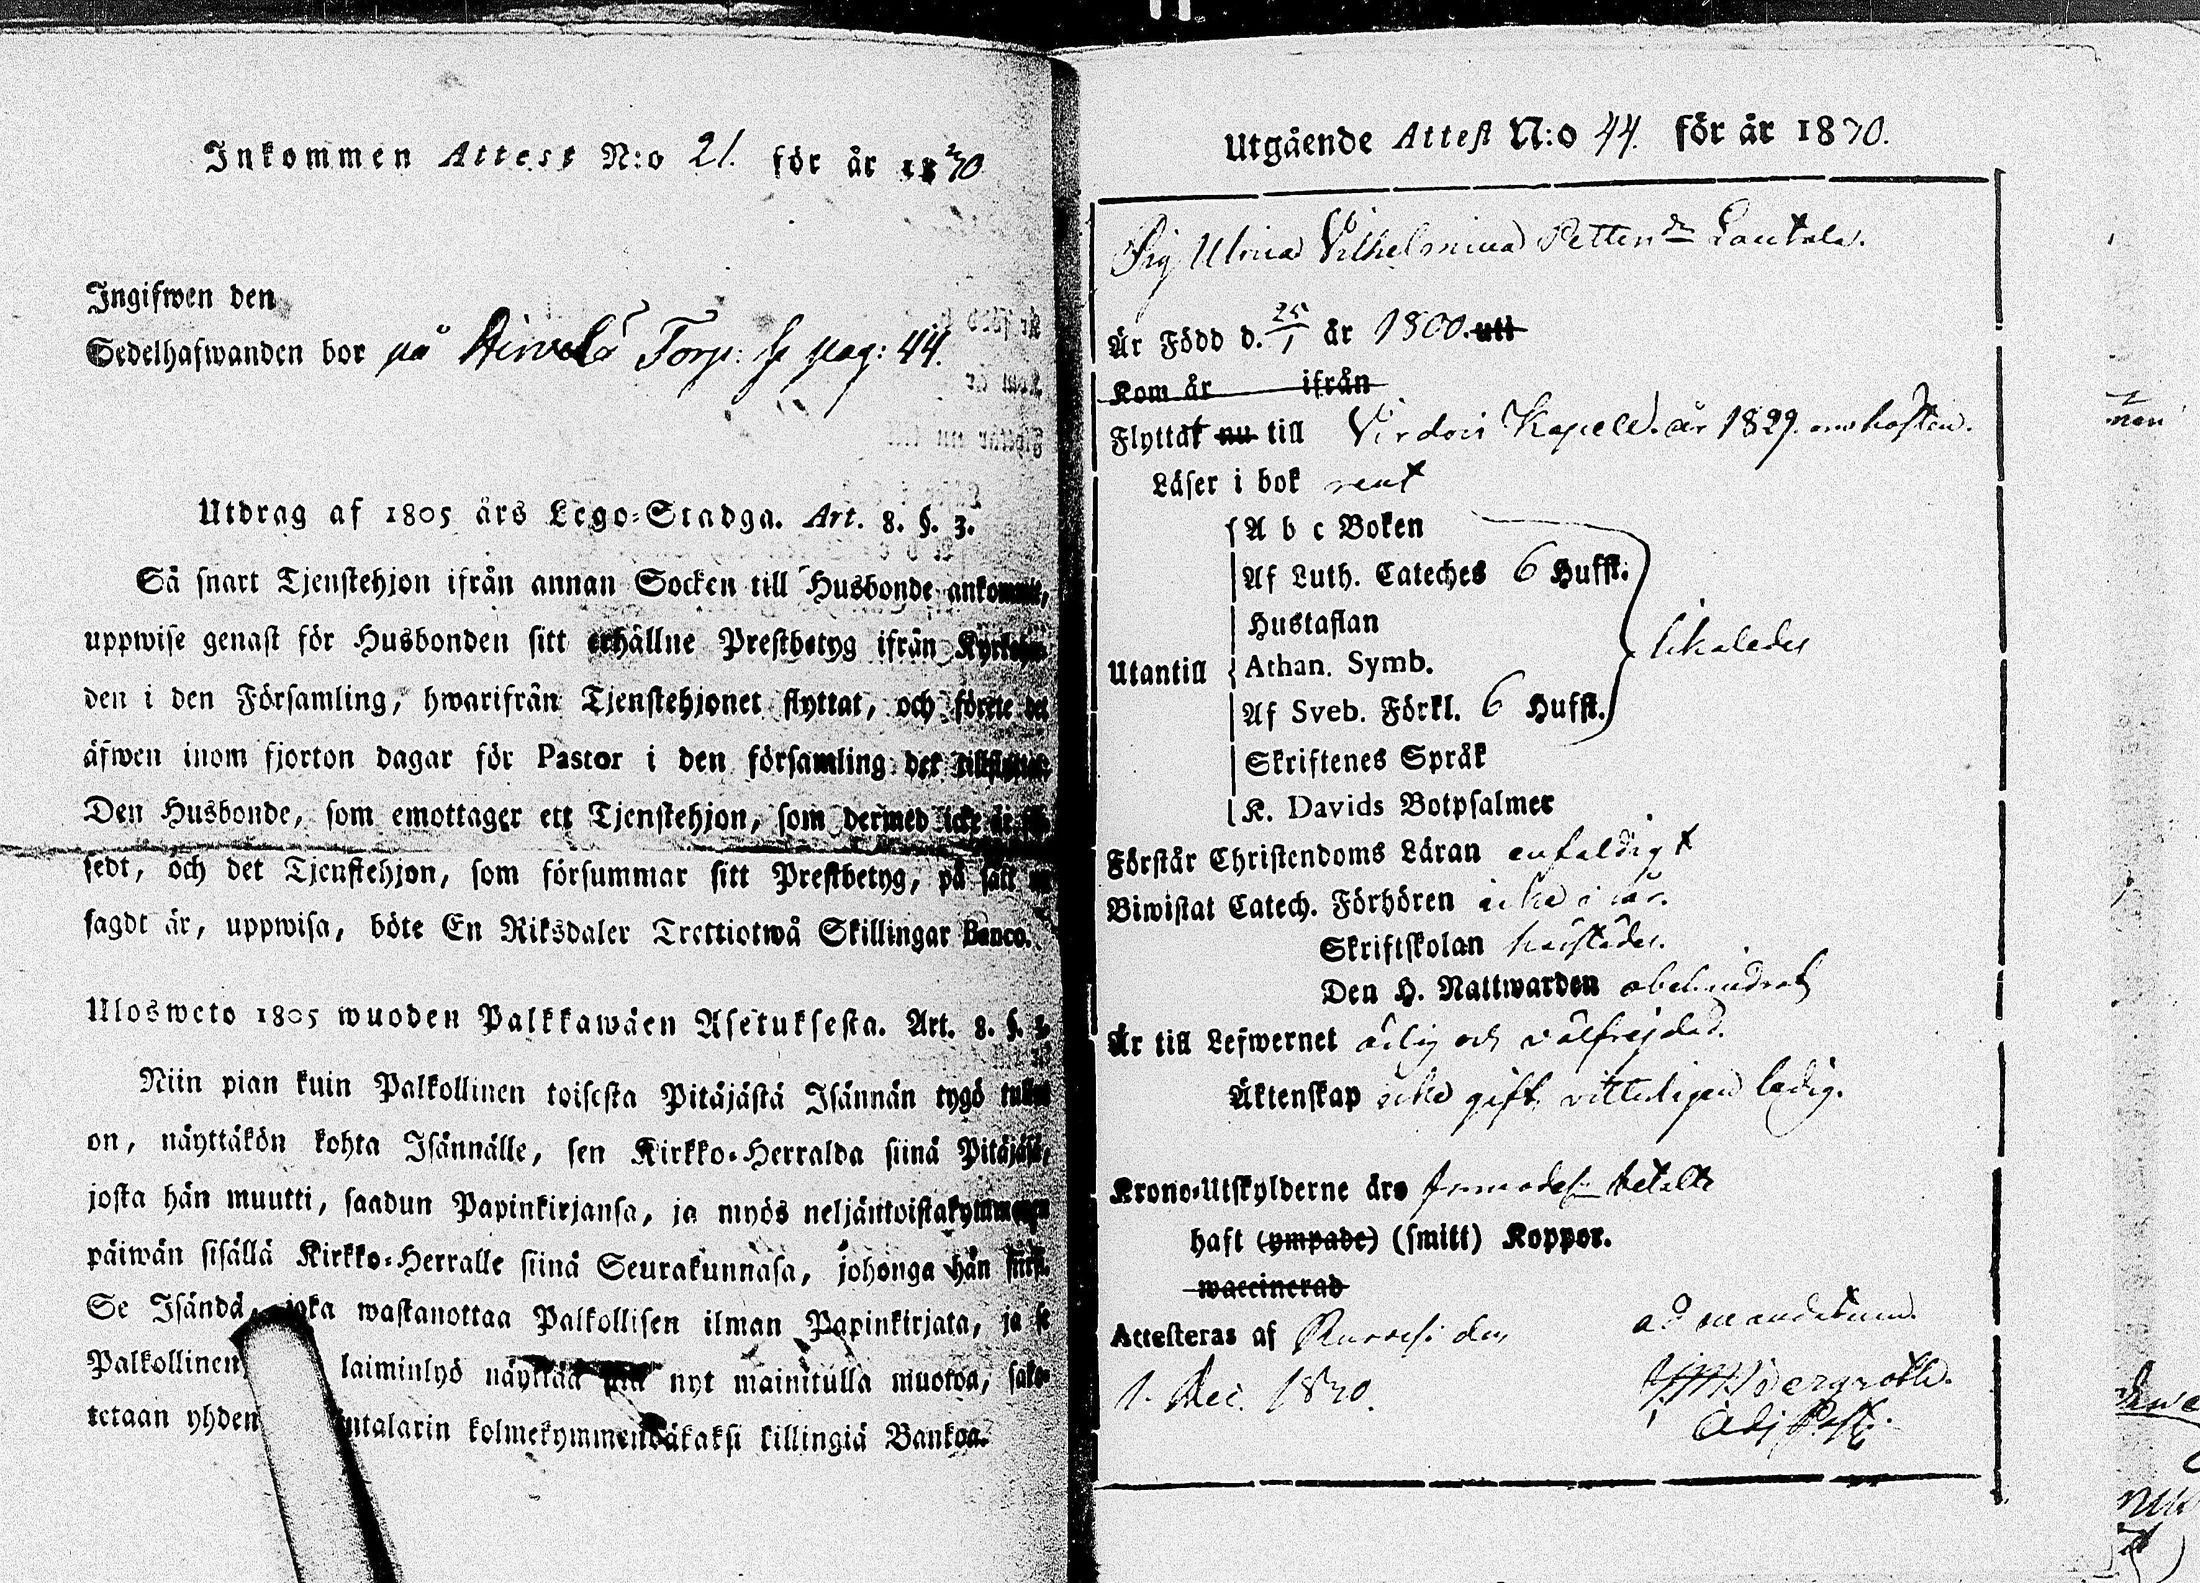 Inkommen Attest N:o 21. för år 1830
Ingifwen den
Sedelhafwanden bor på Torp: pag: 44.
Utdrag af 1805 års Lego-Stadga. Art. 8. §. 3.
Så snart Tjenstehjon ifrån annan Socken till Husbonde ankommit,
uppwise genast för Husbonden sitt erhållne Prestbetyg ifrån
den i den Församling, hwarifrån Tjenstehjonet flyttat, och förete det
äfwen inom fjorton dagar för Pastor i den församling det
Den Husbonde, som emottager ett Tjenstehjon, som dermed icke är
sedt, och det Tjenstehjon, som försummar sitt Prestbetyg, på sätt
sagdt är, uppwisa, böte En Riksdaler Trettiotwå Skillingar Banco.
Ulosweto 1805 wuoden Palkkawäen Asetuksesta. Art. 8. §. 3.
Niin pian kuin Palkollinen toisesta Pitäjästä Isännän tygö tullut
on, näyttäkön kohta Isännälle, sen Kirkko-Herralda siinä Pitäjäsä,
josta hän muutti, saadun Papinkirjansa, ja myös neljäntoistakymmenen
päiwän sisällä Kirkko-Herralle siinä Seurakunnasa, johonga hän
Se Isändä, joka wastanottaa Palkollisen ilman Papinkirjata, ja se
Palkollinen, laiminlyö näyttää nyt mainitulla muotoa, sako-
tetaan yhden kolmekymmendäkaksi killingiä Bankoa.
Utgående Attest N:o 44. för år 1830.
Pig. Ulrica Vilhelmina Lautala.
Är Född d. 25/1 år 1800. utt
Kom år ifrån
Flyttat nu till Virdois Kapell. år 1829. om hösten.
Läser i bok rent
A b c Boken
Af Luth. Cateches 6 Hufst.
Hustaflan
Utantill Athan. Symb. likaledes
Af Sveb. Förkl. 6 Hufst.
Skriftenes Språk
K. Davids Botpsalmer
Förstår Christendoms Läran enfaldigt
Biwistat Catech. Förhören icke i år.
Skriftskolan härstädes.
Den H. Nattwarden obehindrat
Är till Lefwernet ärlig och välfrejdad.
Äktenskap icke gift, vitterligen ledig.
Krono-Utskylderne äro betalte
haft (ympade) (smitt) Koppor.
waccinerad
Attesteras af Ruovesi den ad mandatum.
1. Dec. 1830.
Adj. Past.